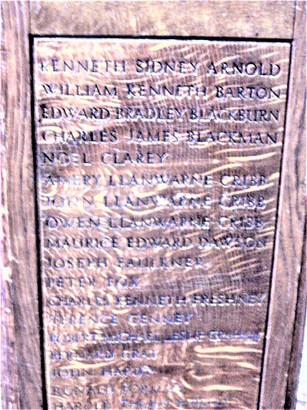 KENNETH SIDNEY ARNOLD
WILLIAM KENNETH BARTON
EDWARD BRADLEY BLACKBURN
CHARLES JAMES BLACKMAN
NOEL CLAREY
LLANWARNE CRIBB
JOHN LLANWARNE CRIBB
OWEN LLANWARNE CRIBB
MAURICE EDWARD DAWSON
JOSEPH FAULKNER
PETER FOX
CHARLES KENNETH FRESHNEY
TERENCE GENNEY
ROBERT MICHAEL LESLIE
BERNARD GRAY
JOHN HARDY
RONALD
HAROLD